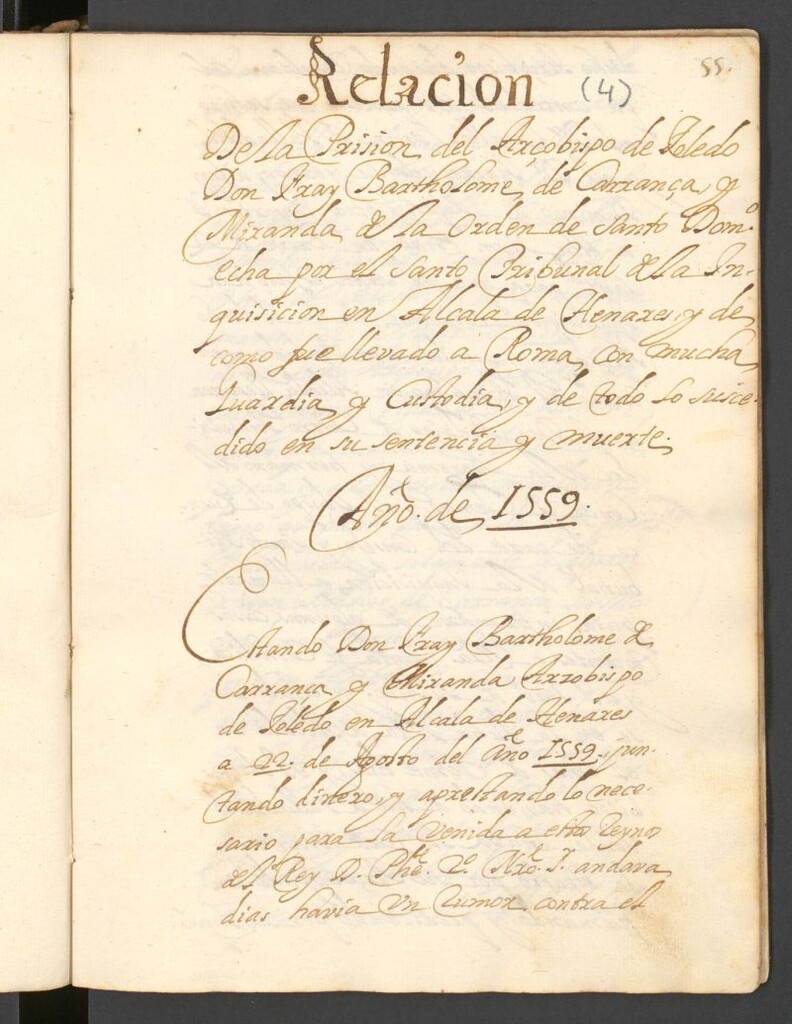 55.
Relacion (4)
De la Prision del Arçobispo de Toledo
Don Fray Bartholome de Carrança, y
Miranda de la Orden de Santo Dom.º
echa por el Santo Tribunal de la In-
quisicion en Alcala de Henares, y de
como fue llevado a Roma con mucha
Guardia, y Custodia, y de todo lo suce-
dido en su sentencia y muerte.
Año. de 1559.
Estando Don Fray Bartholome de
Carrança y Miranda Arzobispo
de Toledo en Alcala de Henares
a 22. de Agosto del año 1559. jun-
tando dinero, y aprestando lo nece-
sario para la Venida a estos Reynos
del Rey D. Phe. 2.º Nro. S. andava
dias havia Un rumor contra el